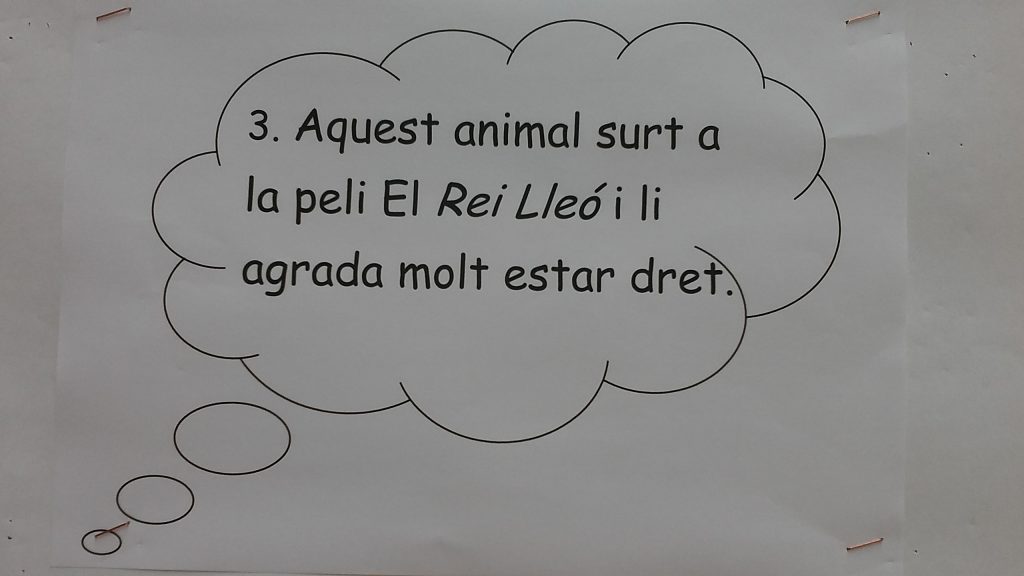 3. Aquest animal surt a
la peli El Rei Lleó i li
agrada molt estar dret.